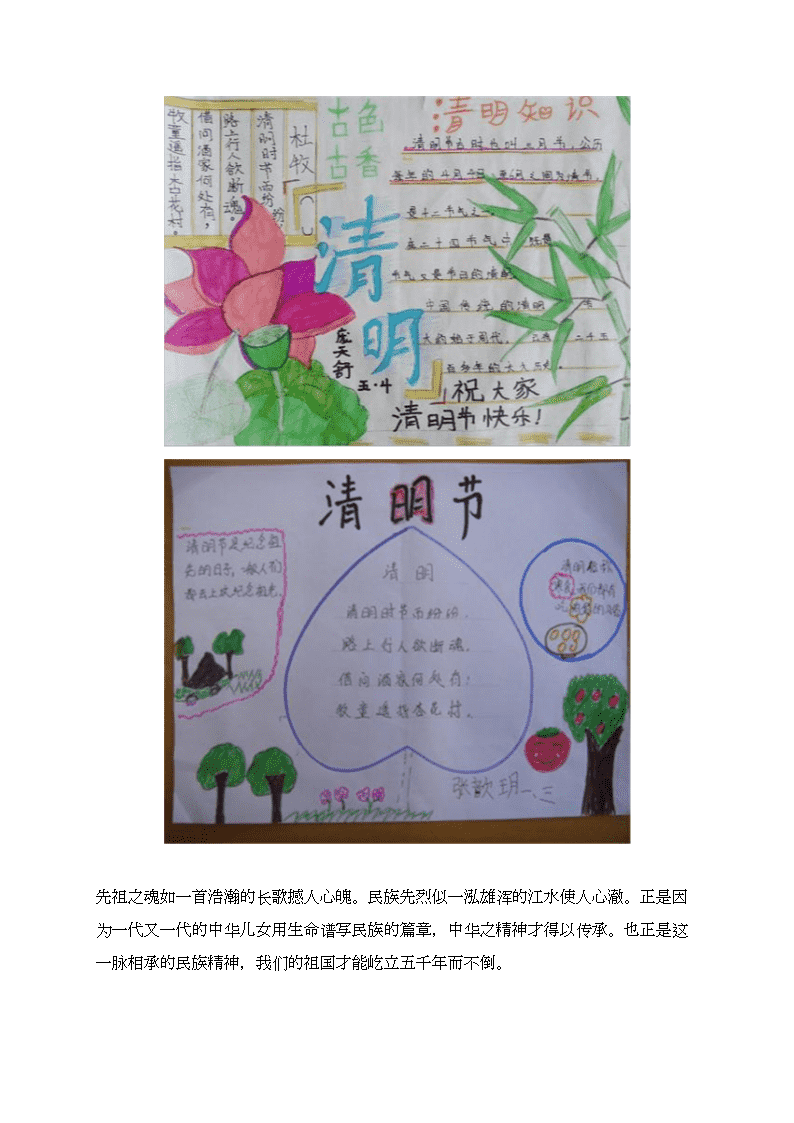 杜牧
清明时节雨纷纷
路上行人欲断魂。
借问酒家何处有，
牧童遥指杏花村。
古色
古香
清明
庞天舒
五·4
清明知识
清明节古时也叫三月节，公历
每年的4月4日至6日之间为清节，
是二十四节气之一。
在二十四节气中
节气又是节日的清明
中国传统的清明
大约始于周代，二千五
百多年的大大历史。
祝大家
清明节快乐！
清明节
清明节是纪念祖
先的日子，一般人们
都去上坟纪念祖先。
清明
清明时节雨纷纷，
路上行人欲断魂。
借问酒家何处有？
牧童遥指杏花村。
我们都有
张歆玥一、三
先祖之魂如一首浩瀚的长歌撼人心魄。民族先烈似一泓雄浑的江水使人心澈。正是因
为一代又一代的中华儿女用生命谱写民族的篇章，中华之精神才得以传承。也正是这
一脉相承的民族精神，我们的祖国才能屹立五千年而不倒。